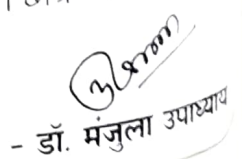 - डॉ. मंजुला उपाध्याय